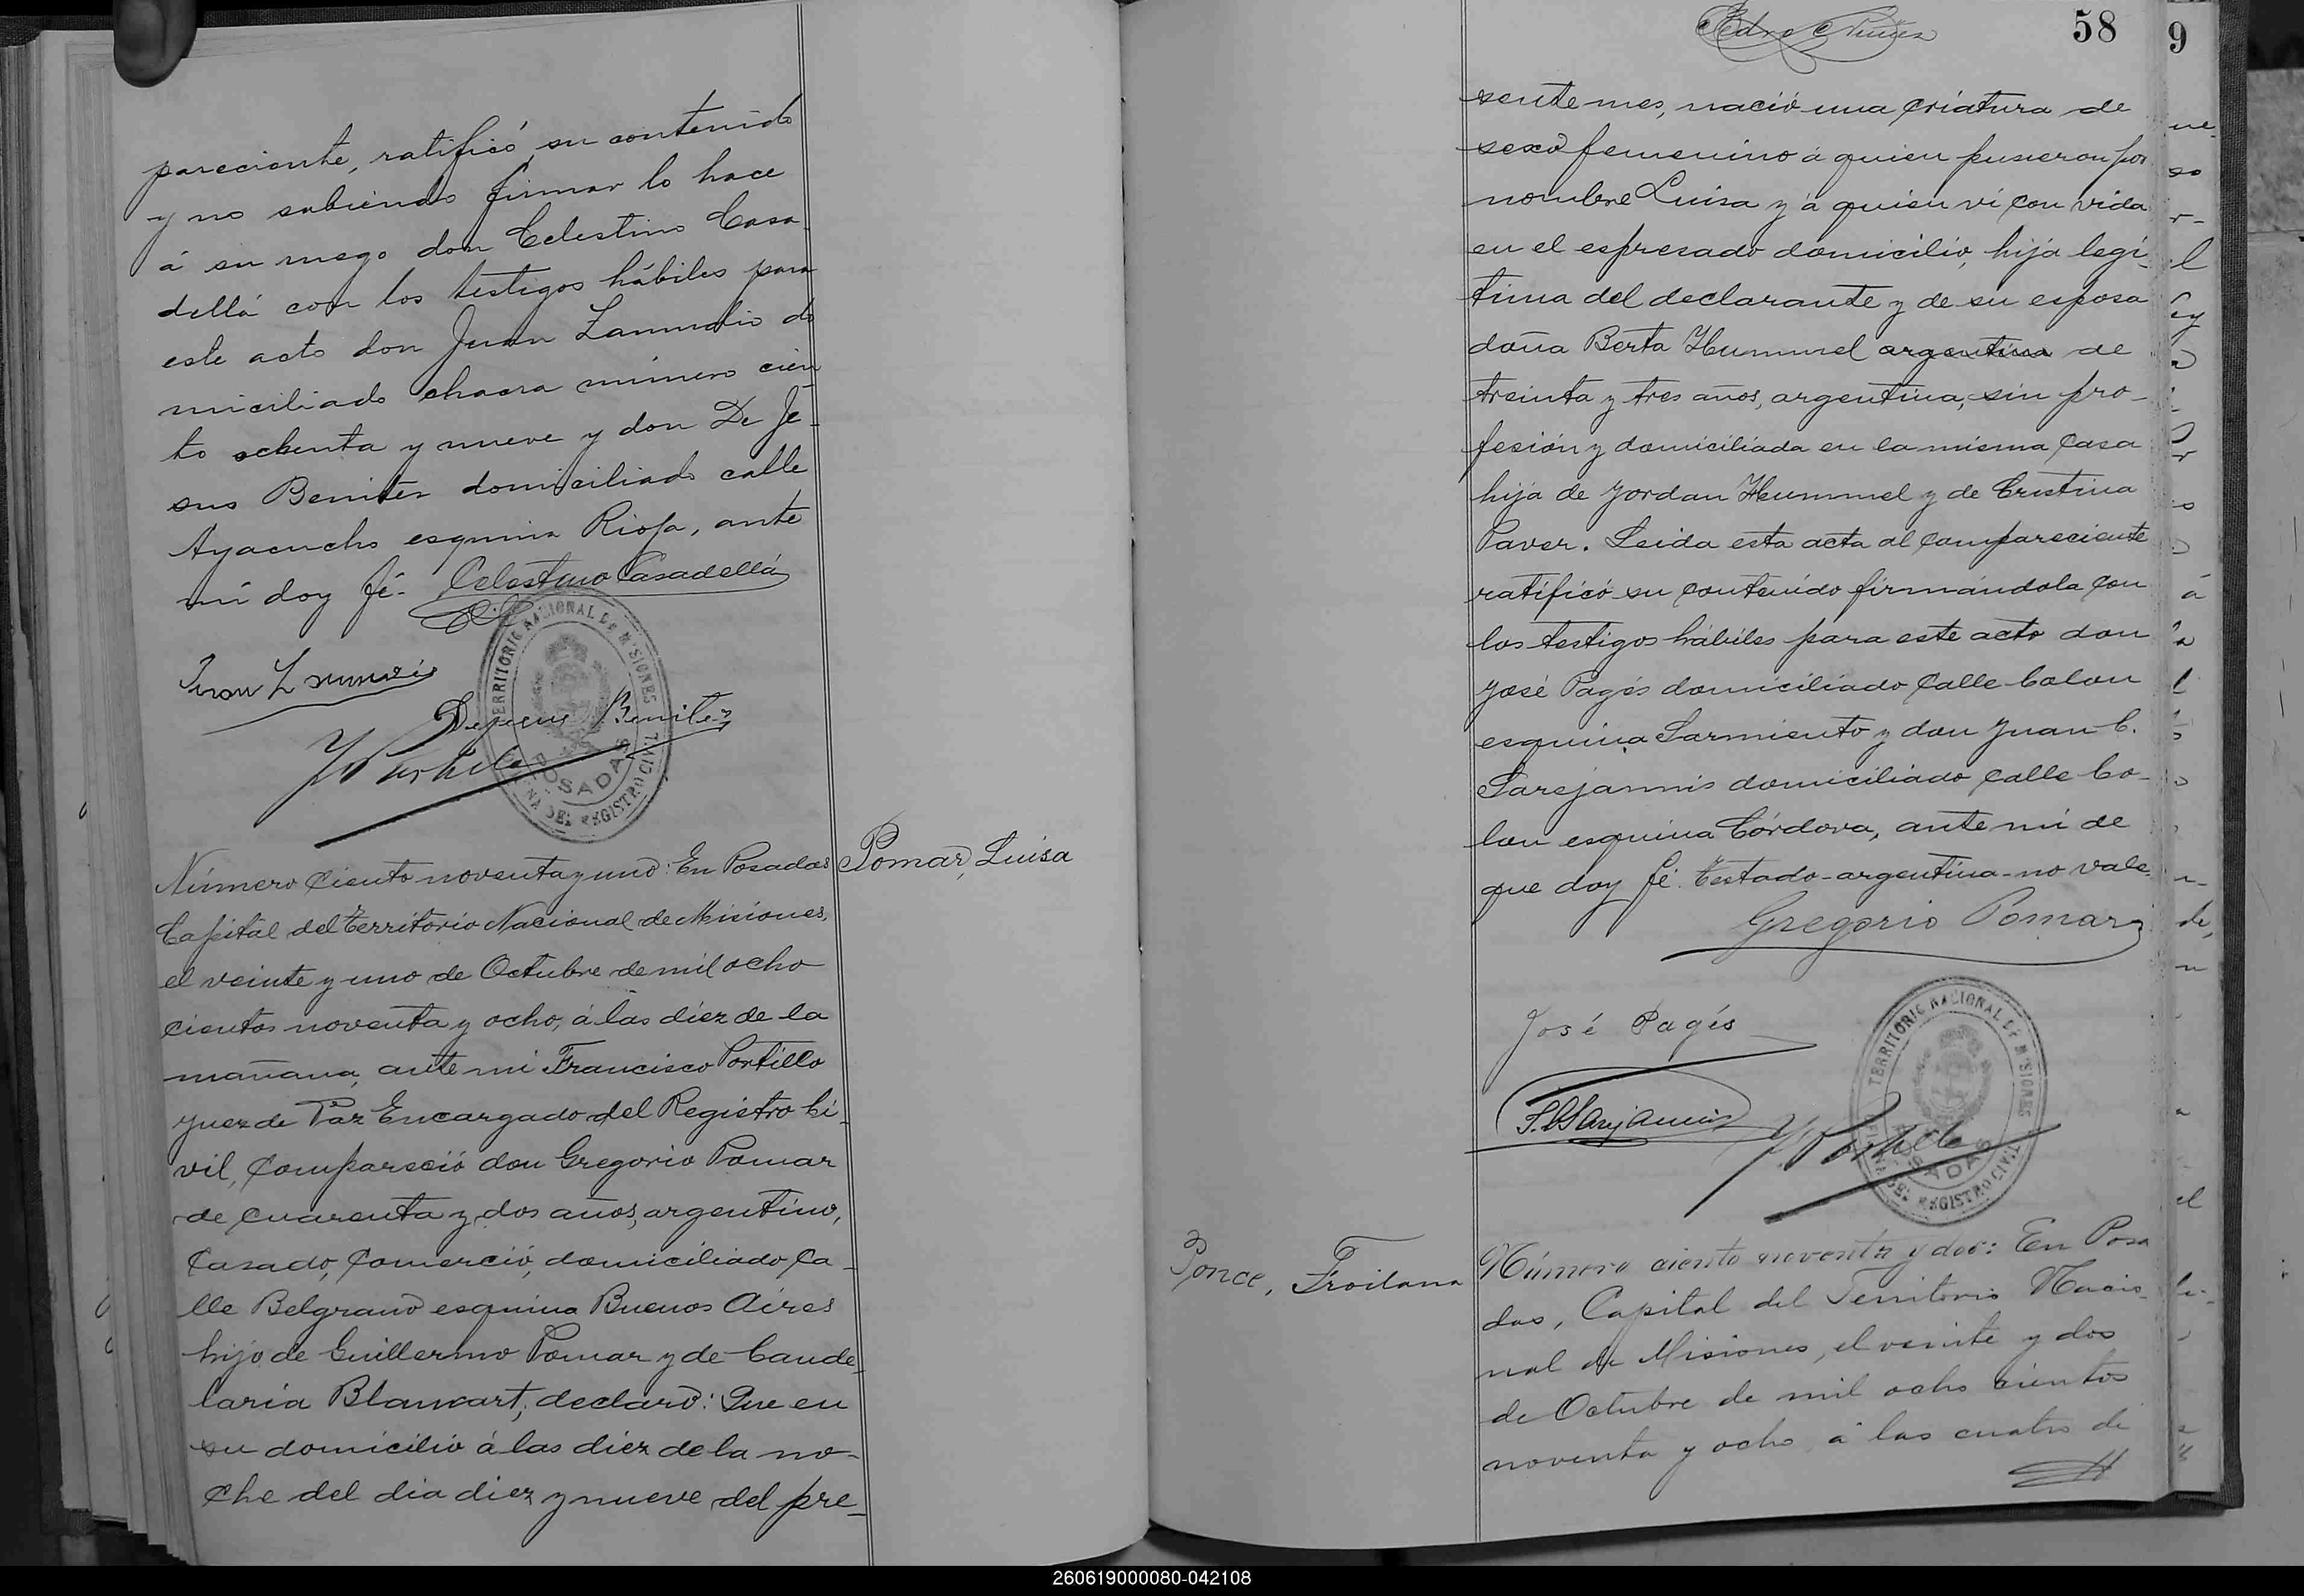 pareciente, ratificó su contenido
y no sabiendo firmar lo hace
á su ruego don Celestino Casa
dellá con los testigos hábiles para
este acto don Juan Zamudio do
miciliado chacra número cien
to ochenta y nueve y don De Je-
sus Benitez domiciliado calle
Ayacucho esquina Rioja, ante
mi doy fé. Celestino Casadellá
TERRITORIO NACIONAL DE MISIONES
POSADAS
OFICINA DEL REGISTRO CIVIL
Juan
Dejesus Benitez
Número Ciento noventa y uno: En Posadas
Pomar, Luisa
Capital del Territorio Nacional de Misiones,
el veinte y uno de Octubre de mil ocho
cientos noventa y ocho, á las diez de la
mañana, ante mi Francisco Portillo
Juez de Paz Encargado del Registro Ci-
vil, Compareció don Gregorio Pomar
de cuarenta y dos años, argentino,
Casado, Comercio, domiciliado Ca-
lle Belgrano esquina Buenos Aires
hijo de Guillermo Pomar y de Cande-
laria declaró: Que en
su domicilio á las diez de la no-
che del dia diez y nueve del pre-
58
9
sente mes, nació una criatura de
sexo femenino á quien pusieron por
nombre Luisa y á quien vi con vida
en el espresado domicilio, hija legi-
tima del declarante y de su esposa
doña Berta Hummel argentina de
treinta y tres años, argentina, sin pro-
fesión y domiciliada en la misma Casa
hija de Jordan Hummel y de Cristina
Paver. Leida esta acta al compareciente
ratificó su contenido firmándola con
los testigos hábiles para este acto don
José Pagés domiciliado Calle Colon
esquina Sarmiento y don Juan C.
Sarejannis domiciliado calle Co-
lon esquina Córdova, ante mi de
que doy fé. Testado-argentina-no vale.
Gregorio Pomar
José Pagés
TERRITORIO NACIONAL DE MISIONES
POSADAS
OFICINA DEL REGISTRO CIVIL
Ponce, Froilana
Número ciento noventa y dos: En Posa
das, Capital del Territorio Nacio-
nal de Misiones, el veinte y dos
de Octubre de mil ocho cientos
noventa y ocho á las cuatro de
260619000080-042108